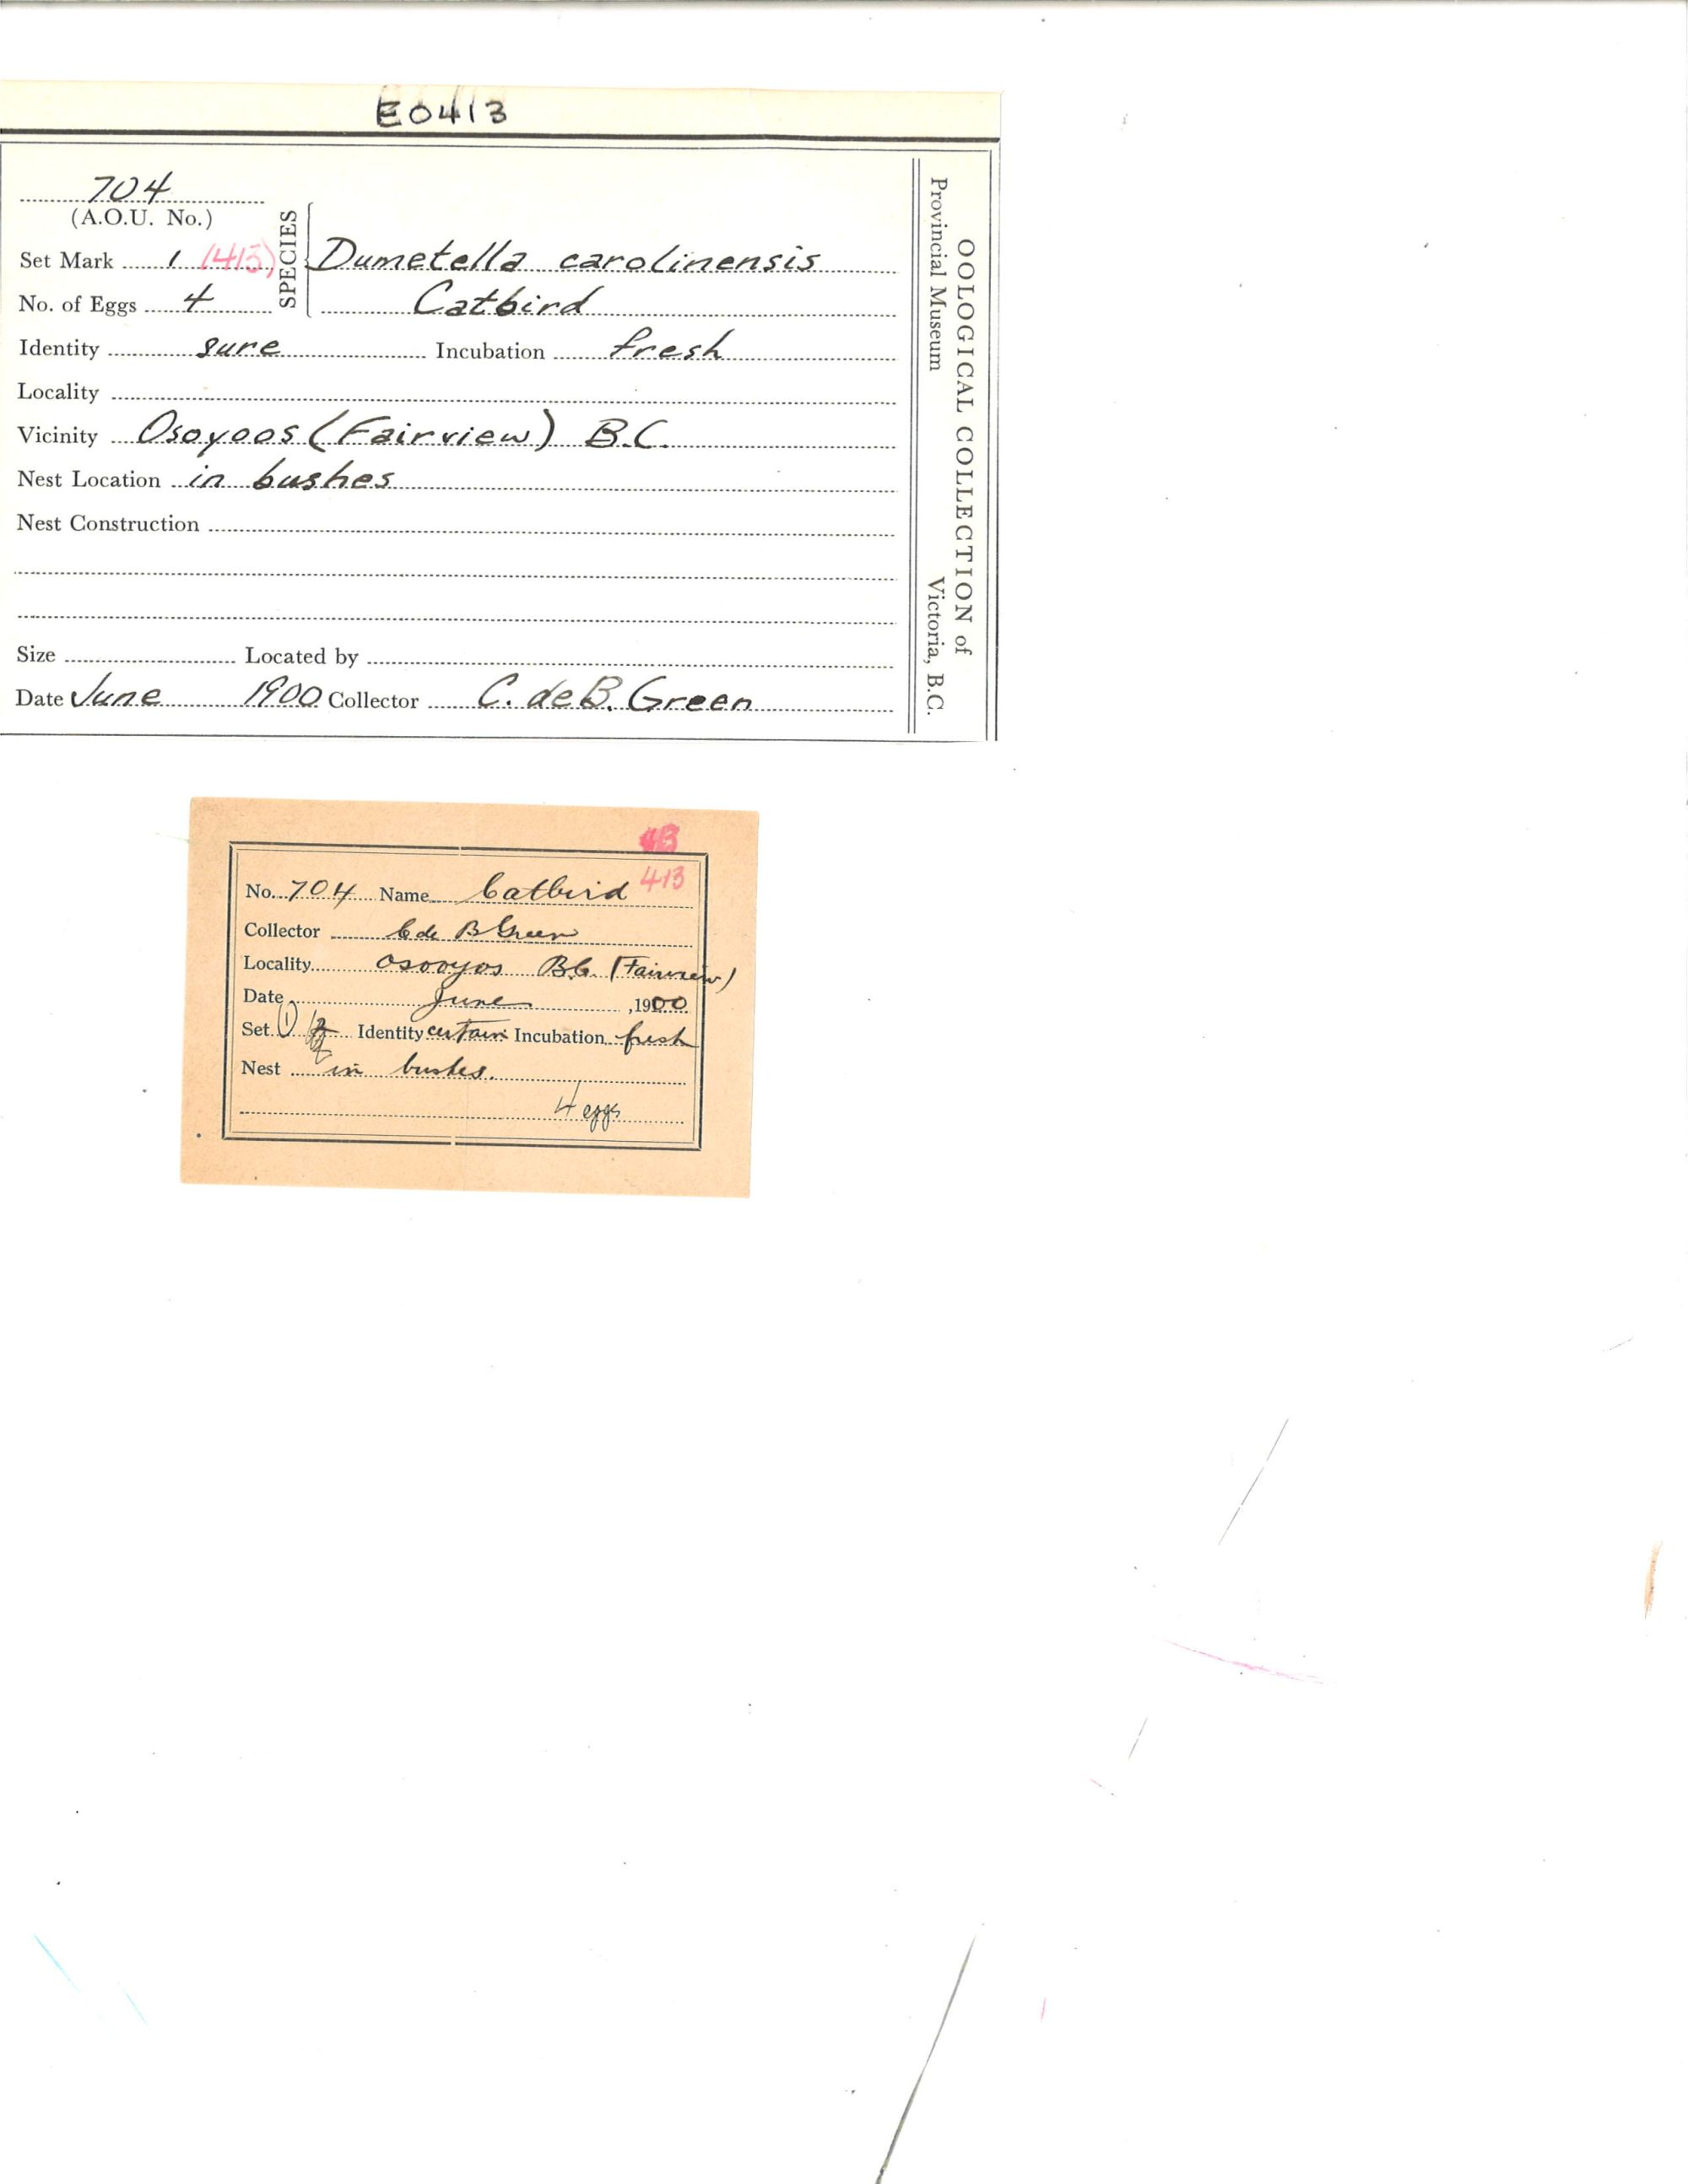 E0413
704
(A.O.U. No.)
Set Mark 1 (413)
No. of Eggs 4
SPECIES
Dumetella carolinensis
Catbird
Identity sure Incubation fresh
Locality
Vicinity Osoyoos (Fairview) B.C.
Nest Location in bushes
Nest Construction
Size Located by
Date June 1900 Collector C. de B. Green
OOLOGICAL COLLECTION of
Provincial Museum Victoria, B.C.
413
No. 704 Name Catbird
Collector C de B Green
Locality Osooyos B.C. (Fairview)
Date June, 1900
Set 1 Identity certain Incubation fresh
Nest in bushes.
4 eggs